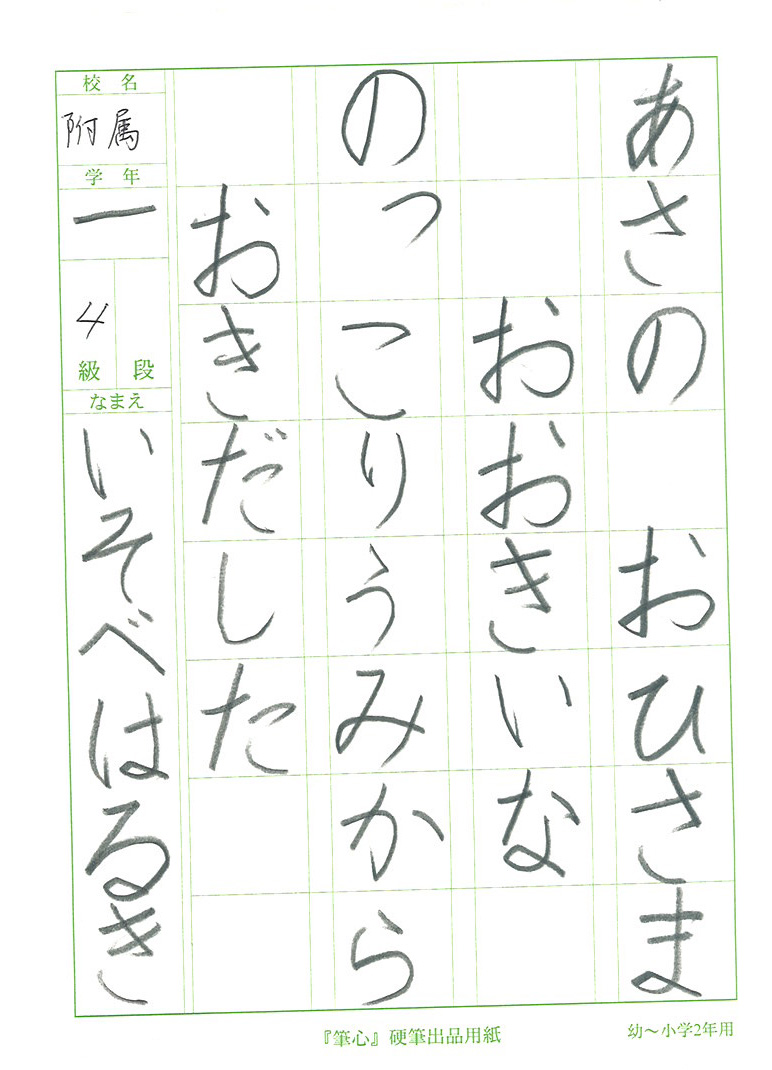 あさの おひさま
おおきいな
のっこりうみから
おきだした
校名
附属
学年
一
4
級 段
なまえ
いそべはるき
『筆心』硬筆出品用紙
幼～小学2年用